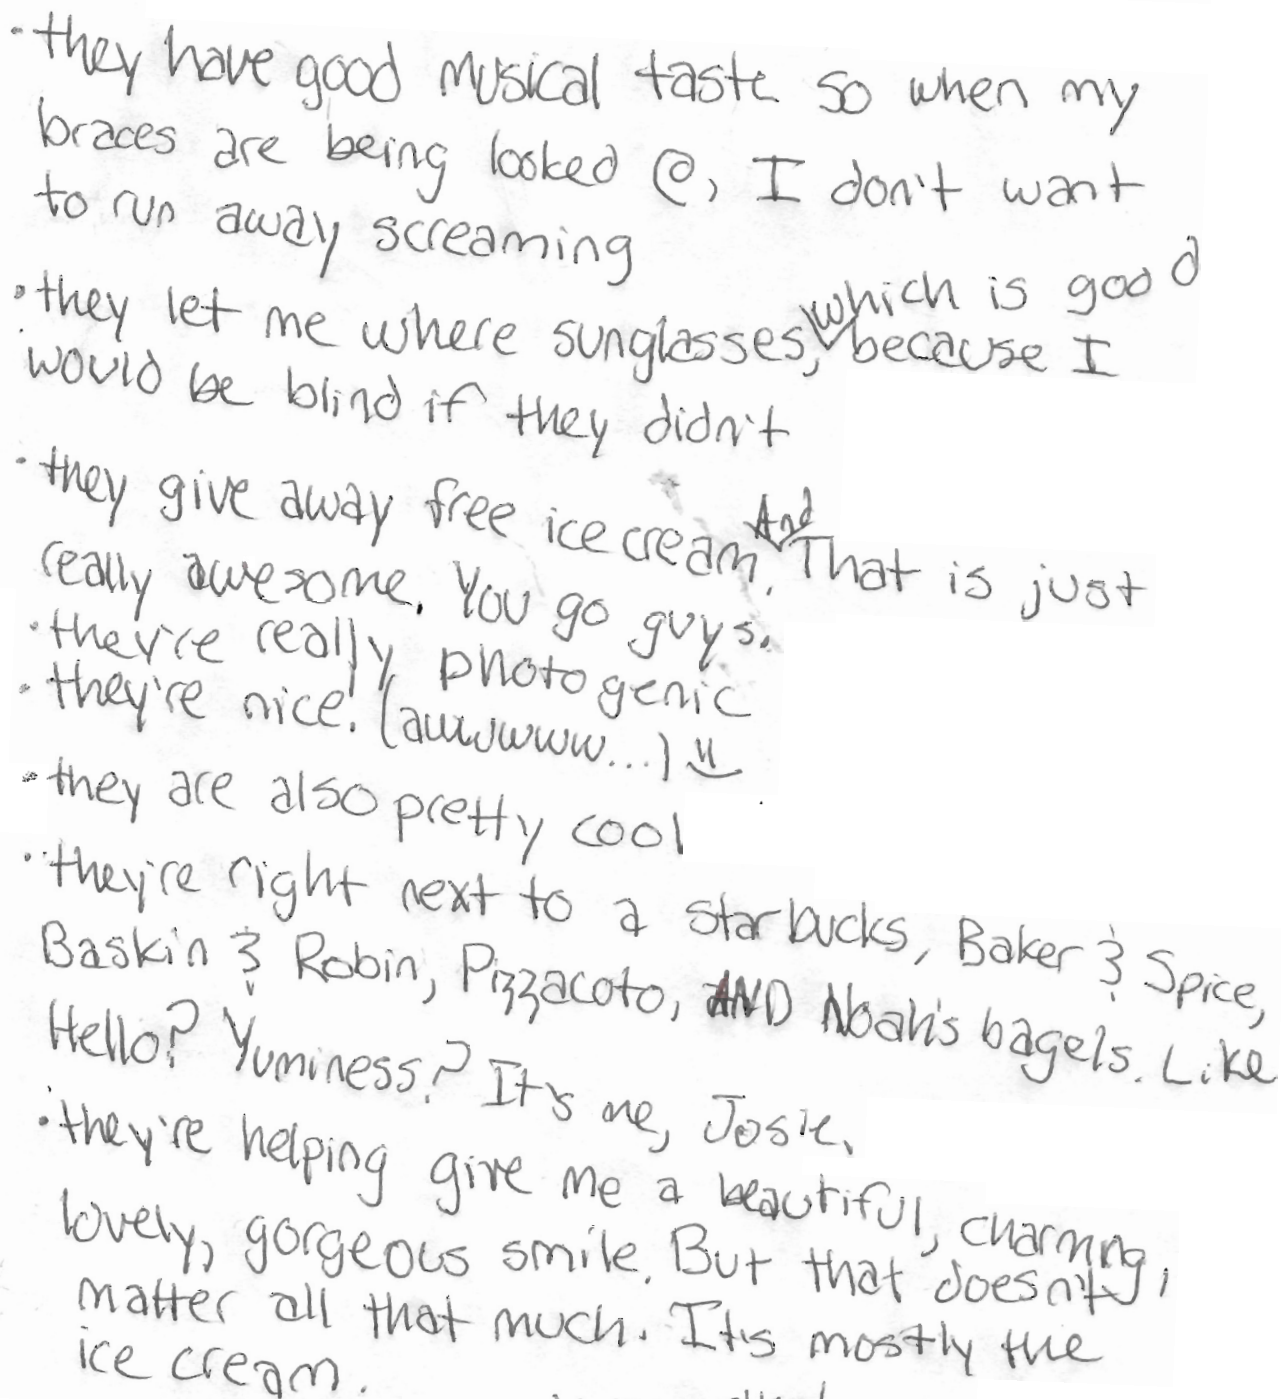 · they have good musical taste so when my
braces are being looked @, I don't want
to run away screaming
· they let me where sunglasses, which is good because I
would be blind if they didn't
· they give away free ice cream. And That is just
really awesome. You go guys.
· they're really photogenic
· they're nice! (awwwwww...)
· they are also pretty cool
· they're right next to a starbucks, Baker & Spice,
Baskin & Robin, Pizzacoto, AND Noah's bagels. Like
Hello? Yuminess? It's me, Josie.
· they're helping give me a beautiful, charming,
lovely, gorgeous smile. But that doesn't
matter all that much. It's mostly the
ice cream.